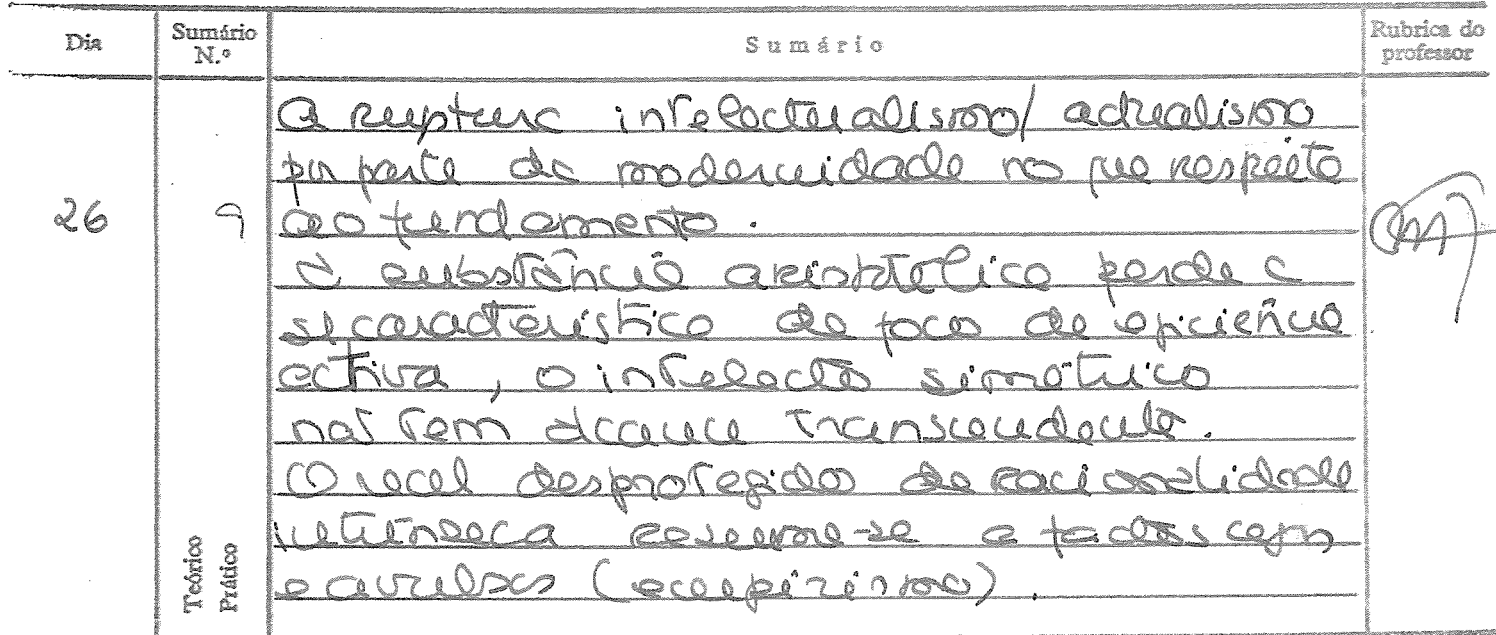 Dia
Sumário N.º
Sumário
Rubrica do professor
26
9
Teórico
Prático
A ruptura intelectualismo/
por parte da modernidade no que respeita
ao fundamento.
A substância aristotélica perde a
característica de foco de eficiência
activa, o intelecto simétrico
não tem alcance transcendente.
O real desprotegido de racionalidade
intrínseca resume-se a factos
e avulsos (empirismo).